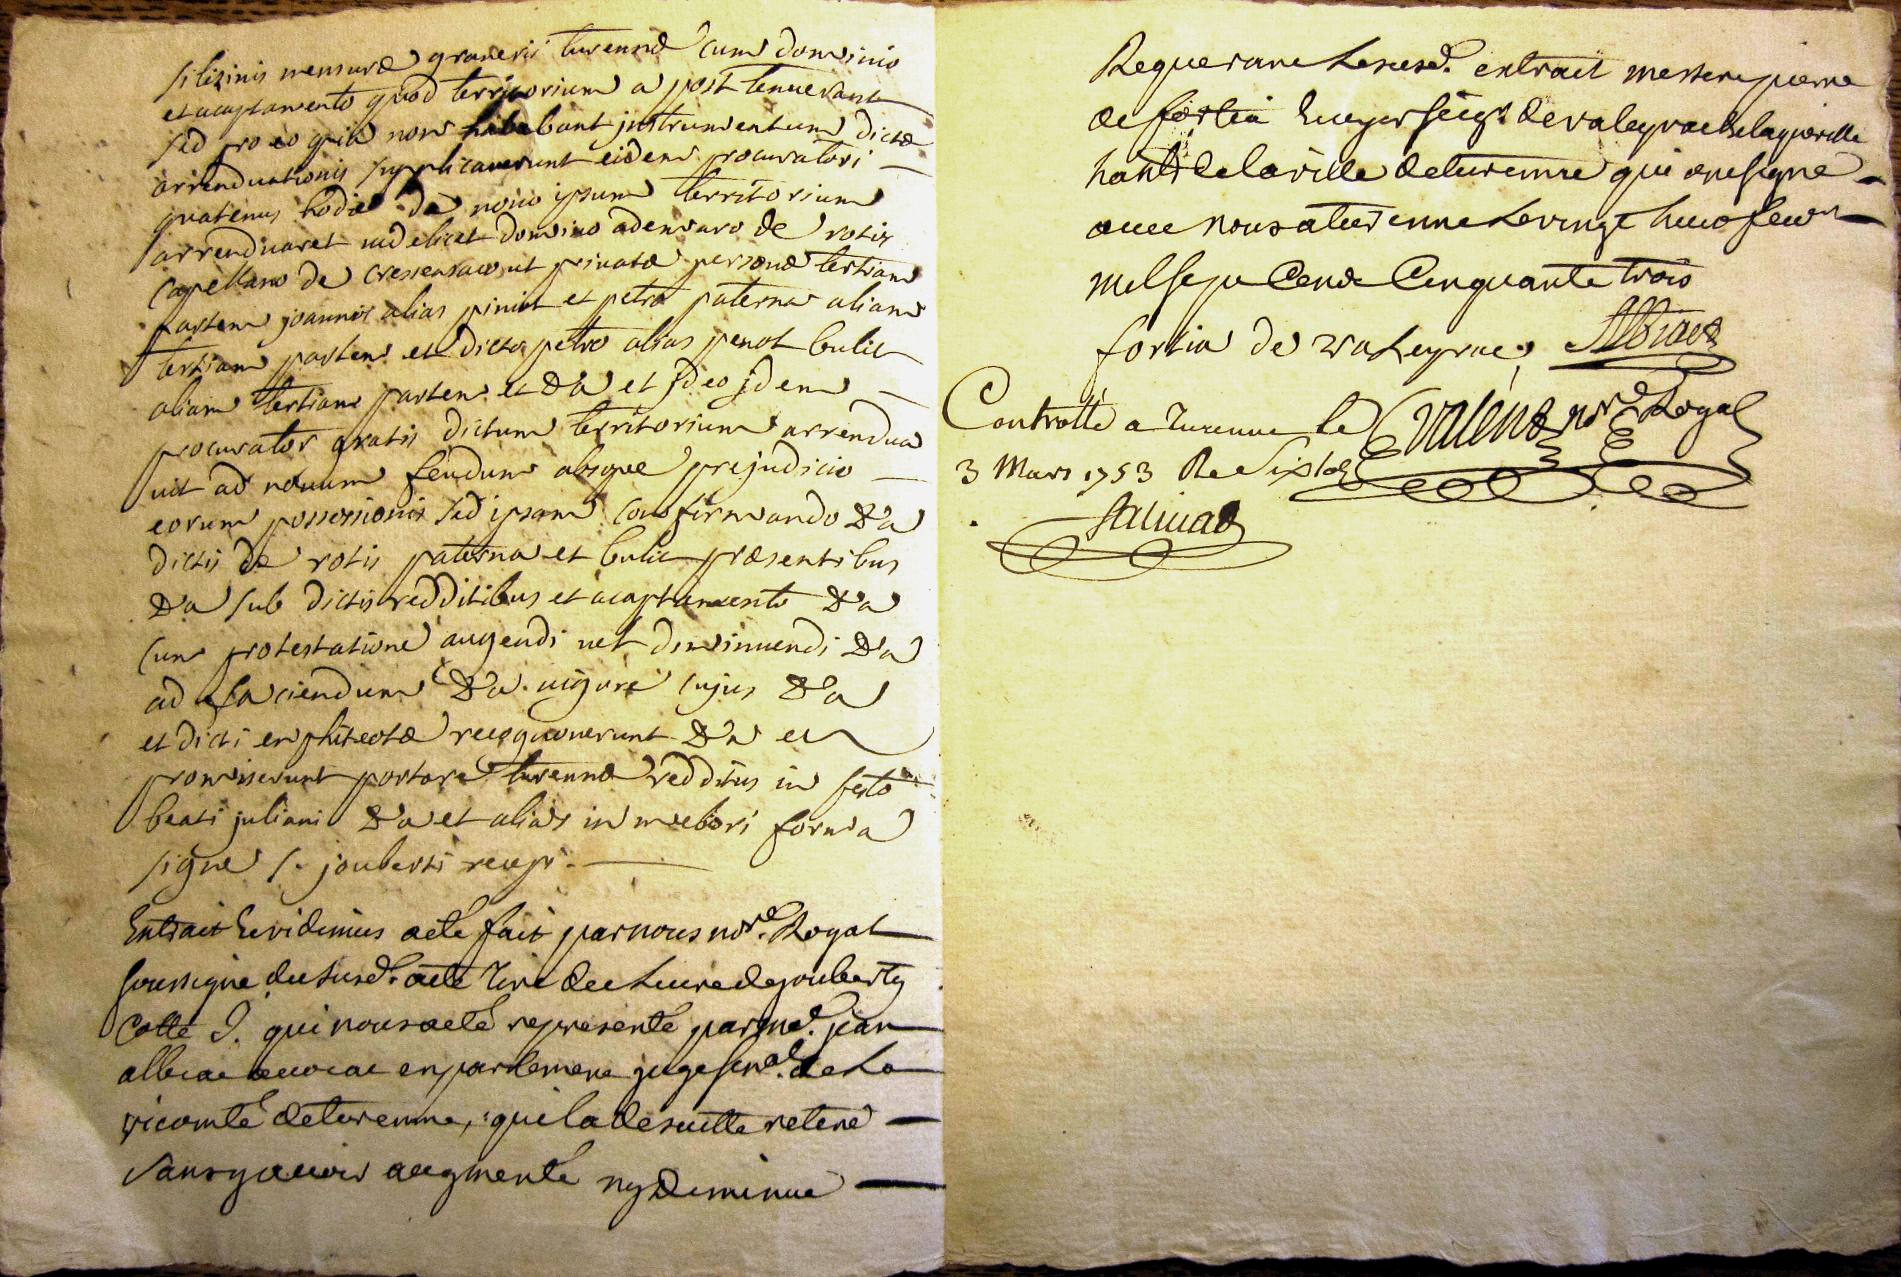 siliginis mensuræ graneris turennæ cum dominio
et acaptamento quod territorium a post tenuerant
sed pro eo quia non habebant instrumentum dictæ
arrenduationis supplicaverunt eidem procuratori
quatenus hodie de novo ipsum territorium
arrenduaret videlicet domino ademaro de rotis
capellano de cressensaco ut privatæ personæ tertiam
partem joannis alias piniot et petro paterna aliam
tertiam partem et dicto petro alias penot bulit
aliam tertiam partem et &a et ideo idem
procurator gratis dictum territorium arrendua
vit ad novum feudum absque prejudicio
eorum possessionis sed ipsam confirmando &a
dictis de rotis paterna et bulit præsentibus
&a sub dictis redditibus et acaptamento &a
cum protestatione augendi vel diminuendi &a
ad faciendum &a vigore cujus &a
et dicti enphiteotæ recognoverunt &a et
promiserunt portare turennæ redditus in festo
beati juliani &a et alias in meliori forma
signe s. jouberti recepi.
Extrait & vidimus acte fait par nous nore. Royal
soussigne du susd. acte tire du livre de jouberty
cotté J. qui nous a eté represente par me. jean
albiac avocat en parlement juge senal. de la
vicomté de turenne, qui la de suitte retiré
sans y avoir augmente ny diminue
Requerant le susd. extrait messire pierre
de fortia Ecuyer seigr. de valeyrac & laqueville
habt. de la ville de turenne qui a ne signe
avec nous a turenne le vingt huit fevr
mil sept Cent Cinquante trois
fortia de valeyrac, Albiac
Controllé a Turenne le Valéns nore Royal
3 Mars 1753 Re Six sols
Saliuat